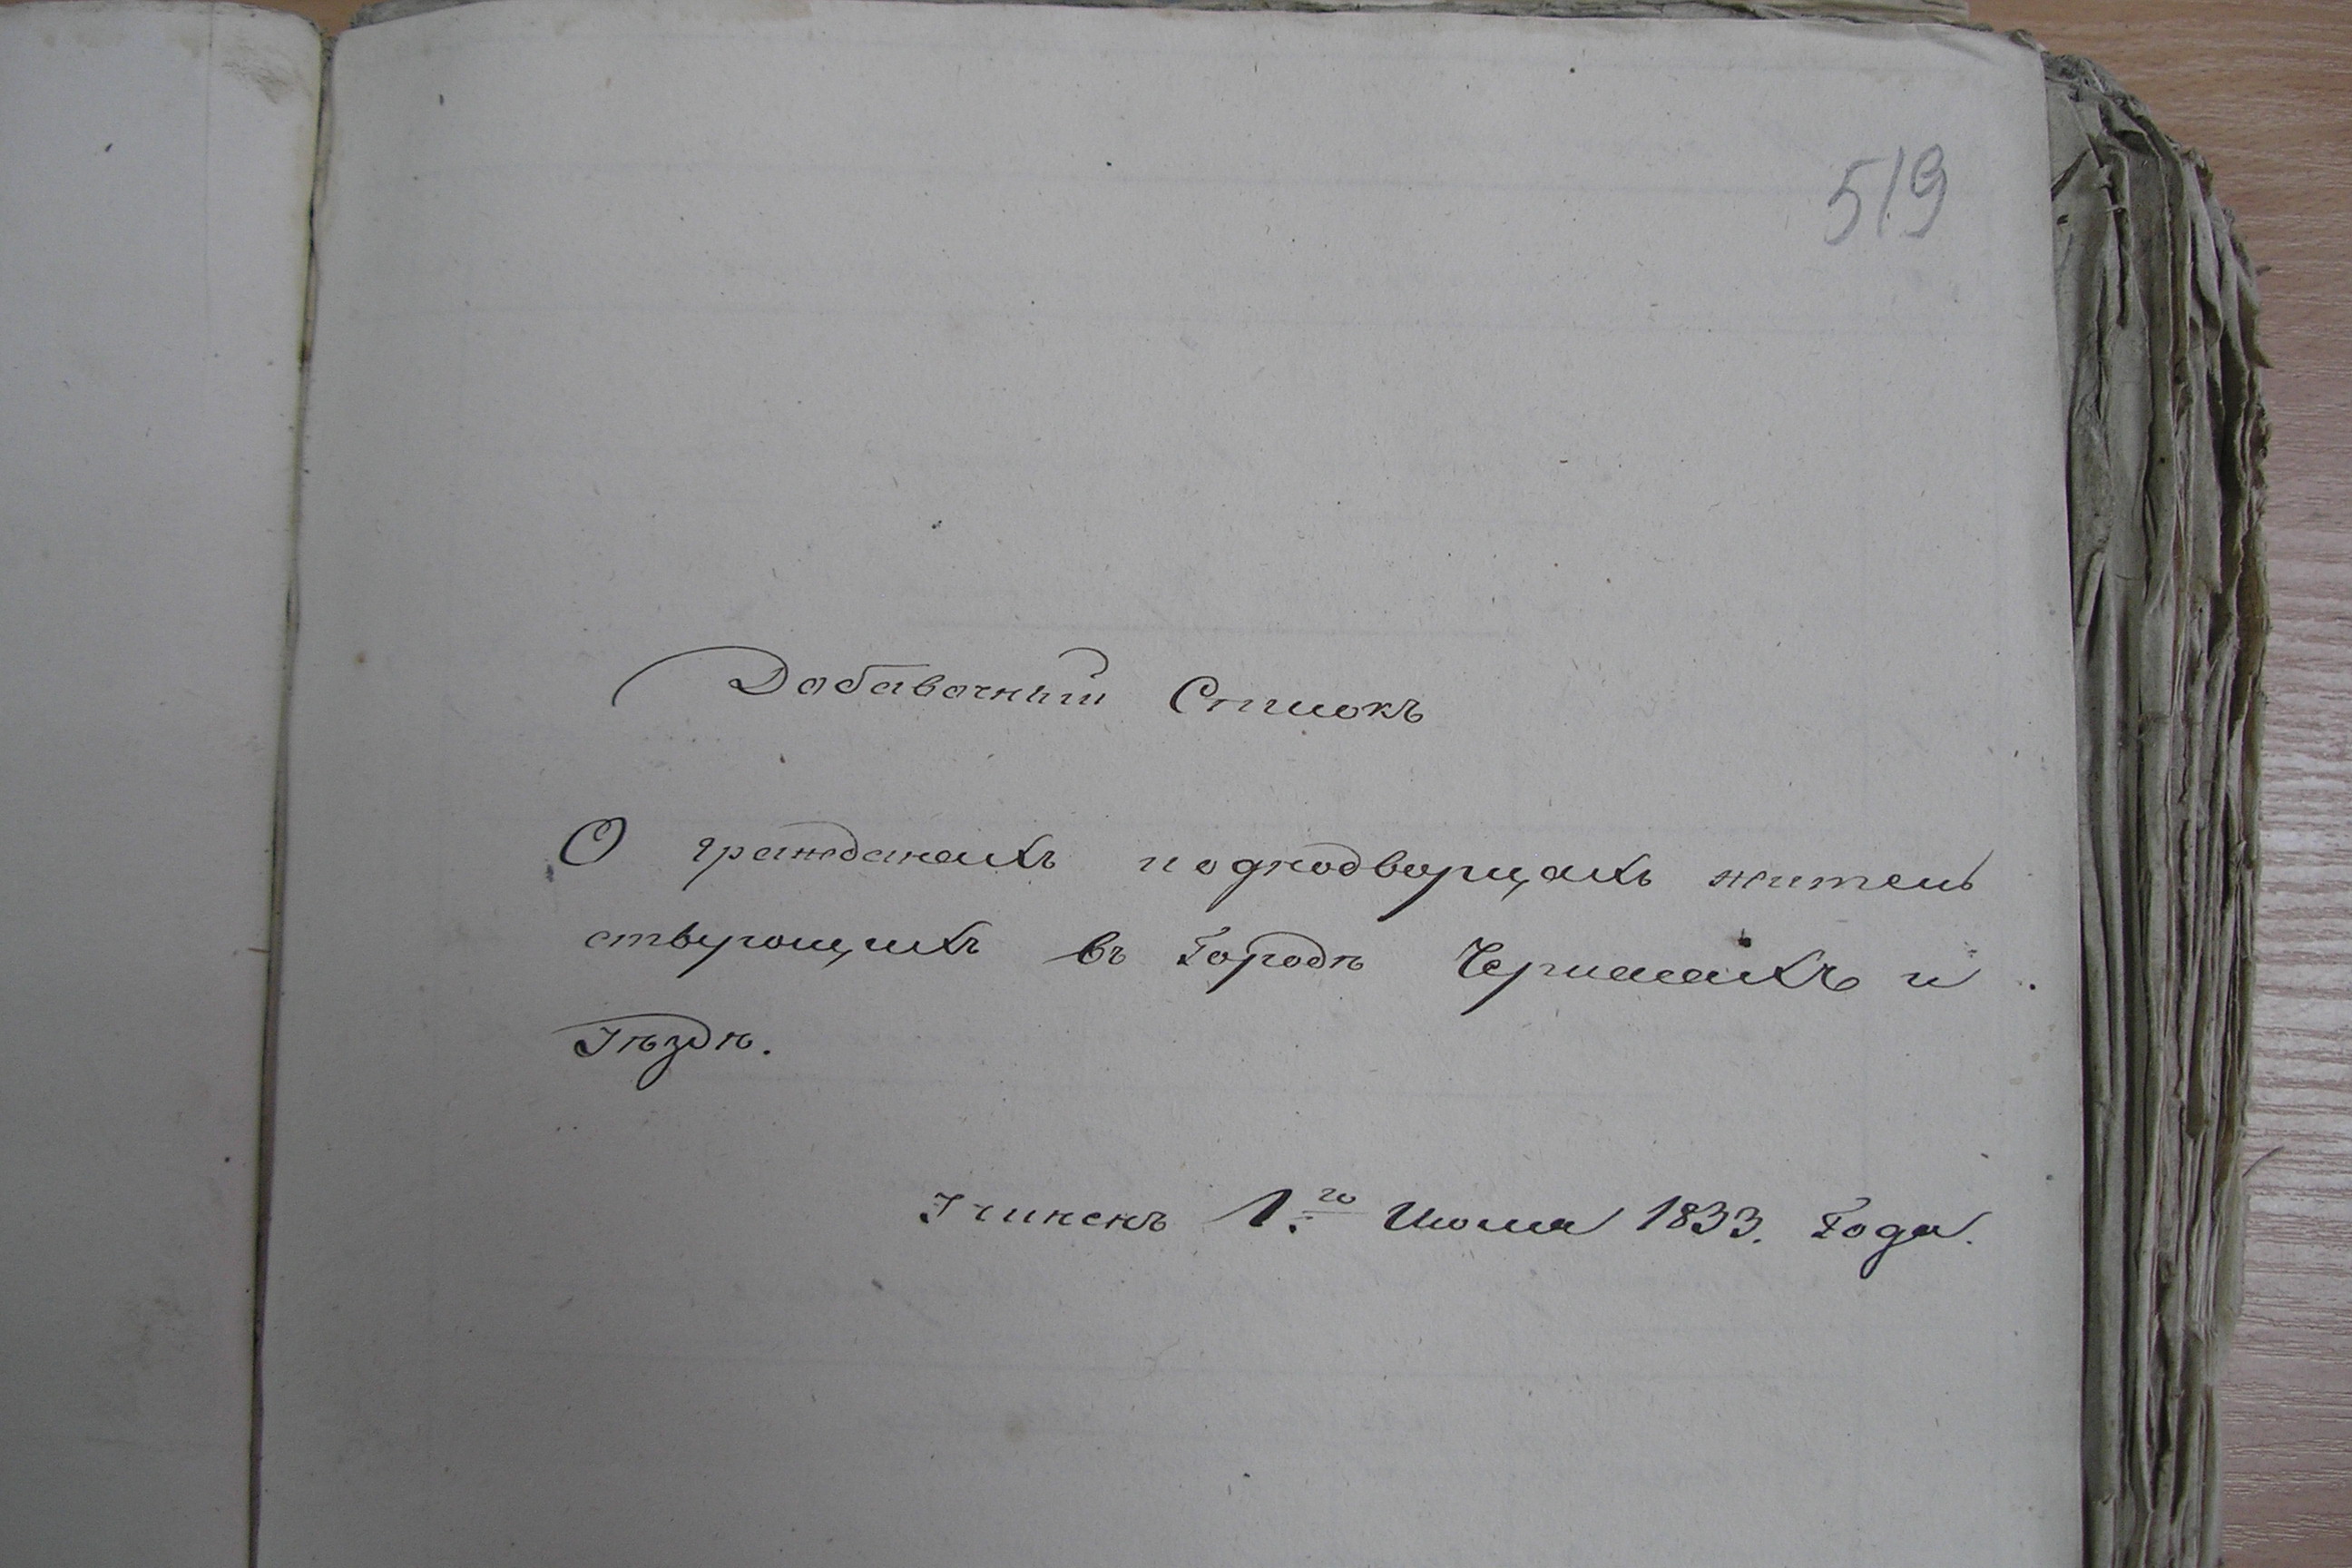 519
Добавочный Списокъ
О гражданахъ и однодворцахъ житель
ствующихъ въ Городѣ Черикахъ и
Уѣздѣ.
Учиненъ 1.го Июля 1833. Года.